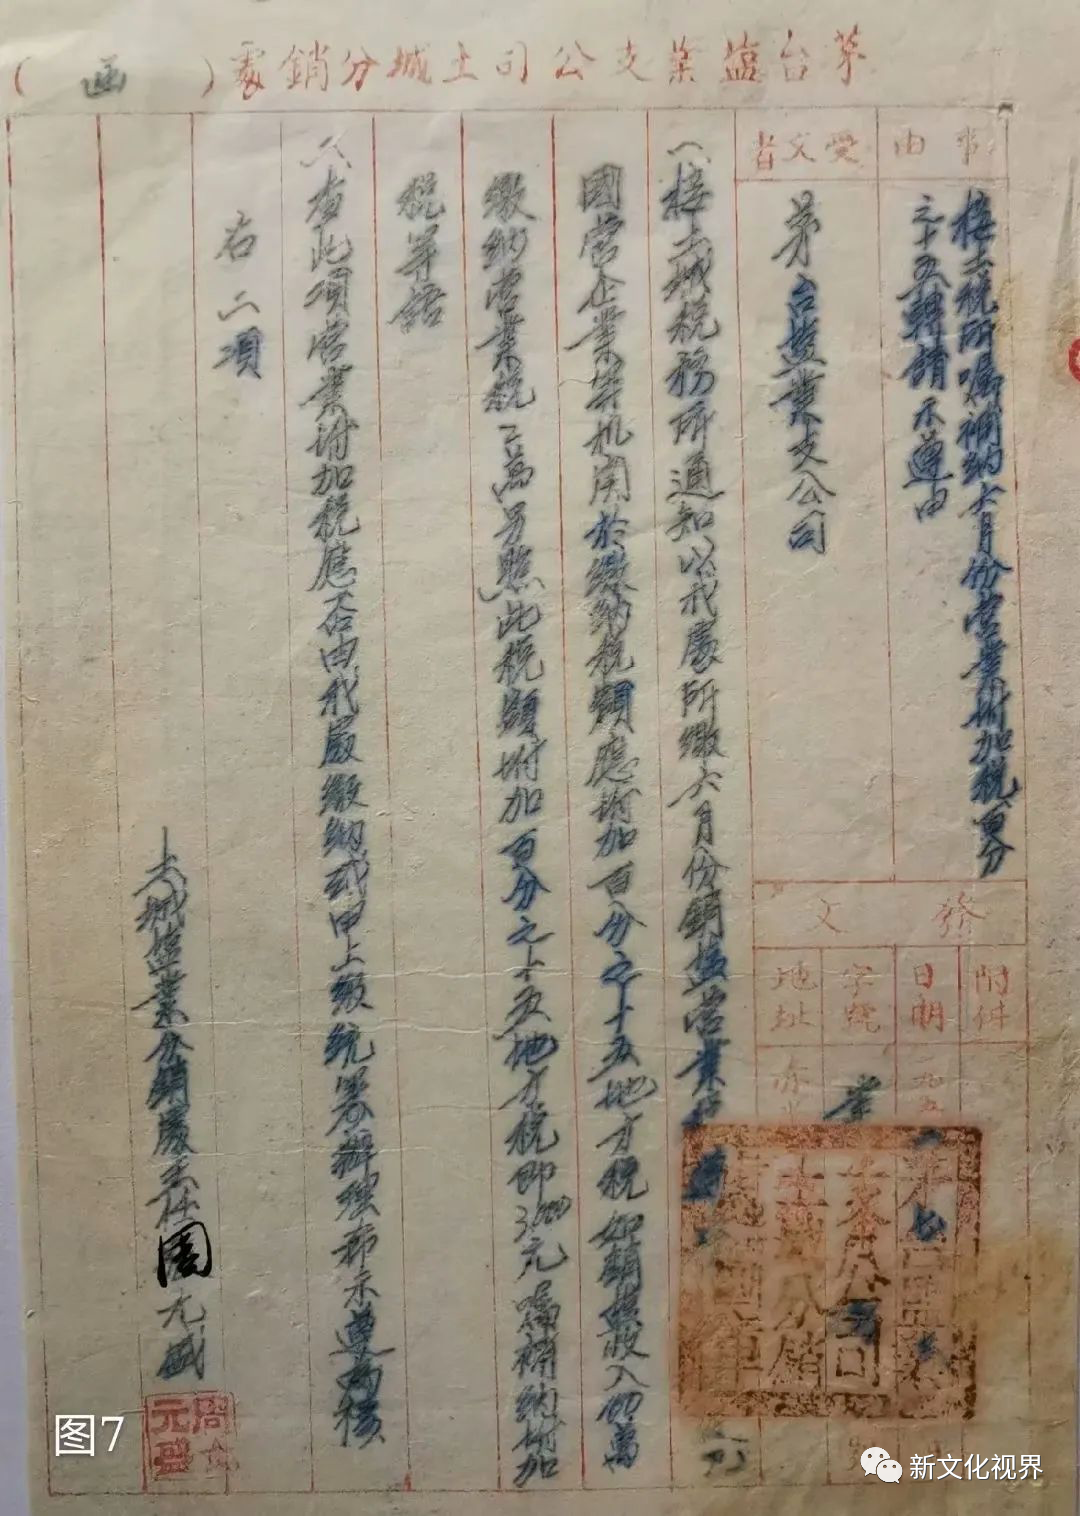 茅台盐業支公司土城分銷處（函）
事由
接土城税所嘱補納六月份营業附加税百分
之十五轉請示遵由
受文者
茅台盐業支公司
發文
附件
日期
字號
地址
一九五
一、接土城税務所通知以我處所繳六月份銷盐营業税
國营企業等机関於繳納税額應附加百分之十五地方税如銷盐收入100萬
繳納营業税2萬另照此税額附加百分之十五地方税即3,000元嘱補納附加
税等語
二、查此項营業附加税應否由我處繳納或甲上繳統籌辦理希示遵為禱
右二項
土城盐業分銷處主任周元盛
周元盛
图7
新文化视界